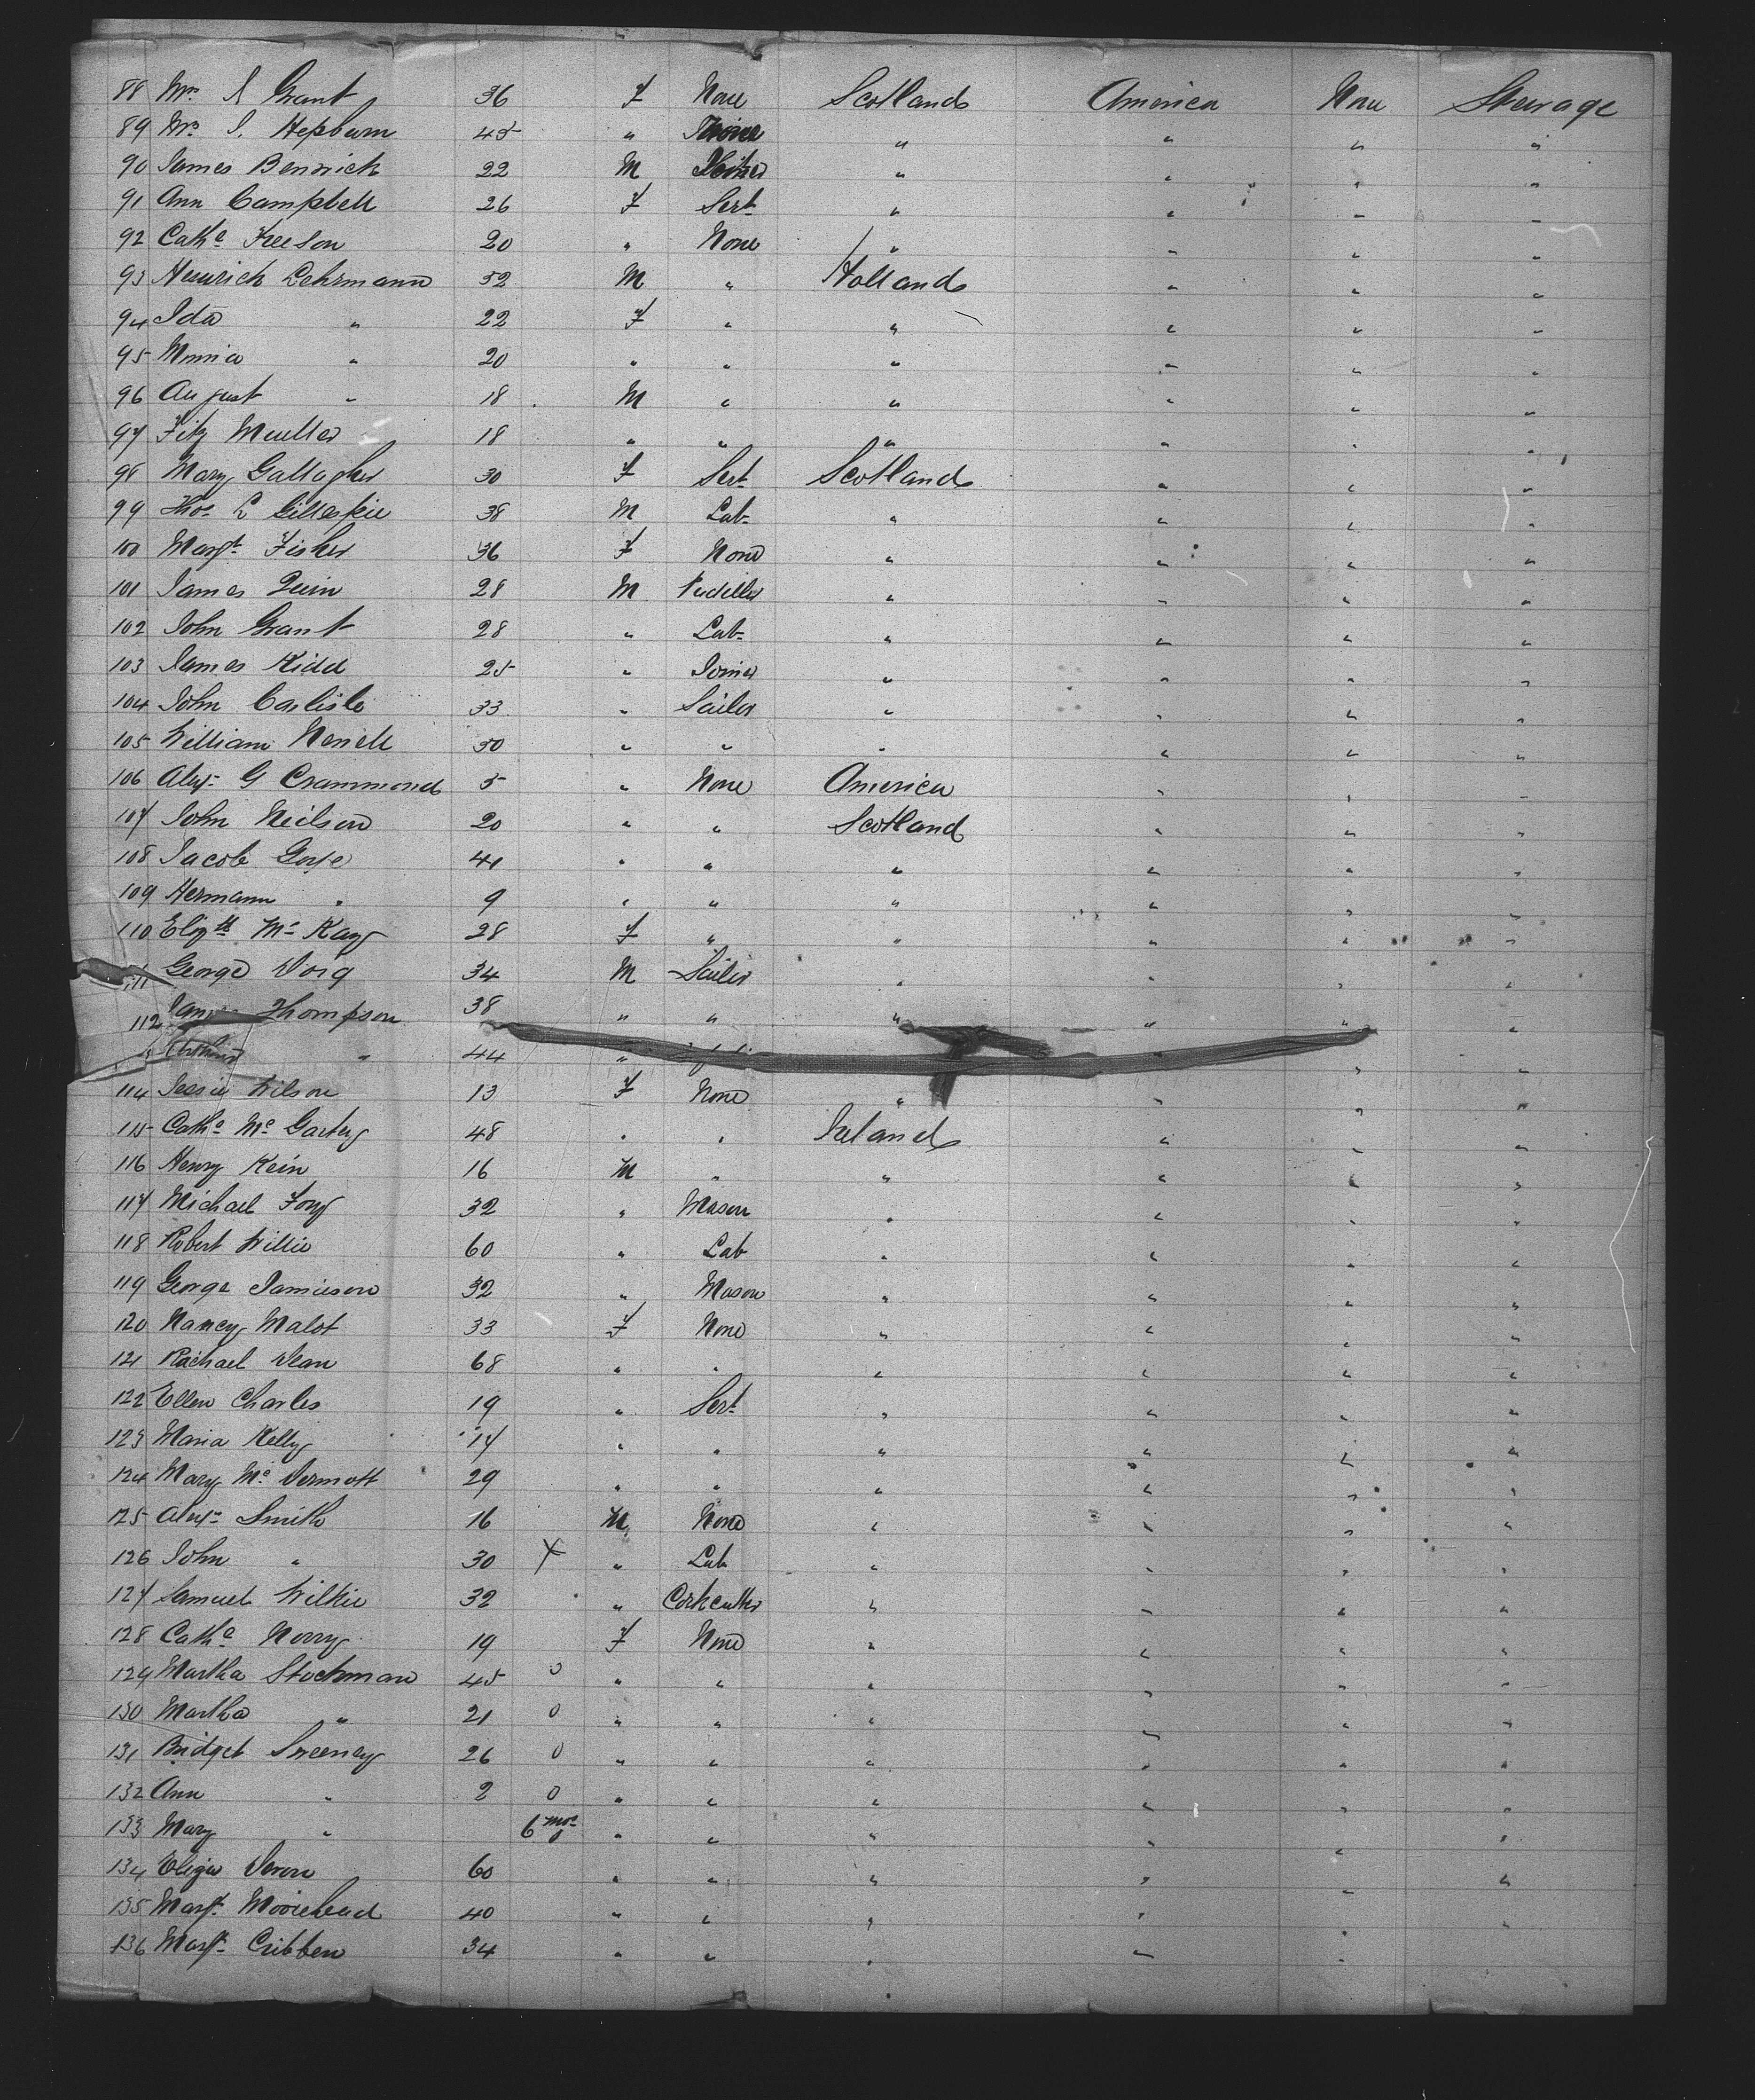 88 Mrs. A Grant 36 F None Scotland America None Steerage
89 Mrs. I. Hepburn 45 " " " " "
90 James Benwick 22 M " " " "
91 Ann Campbell 26 F Sert " " " "
92 Cathe Kelson 20 " None " " " "
93 Heinrich Lehrmann 52 M " Holland " " "
94 Ida " 22 F " " " " "
95 Minna " 20 " " " " " "
96 August " 18 M " " " " "
97 Fitz Mueller 18 " " " " " "
98 Mary Gallagher 30 F Sert Scotland " " "
99 Thos L Gillespie 38 M Lab " " " "
100 Margt Fisher 36 F None " " " "
101 James Quin 28 M Pudiller " " " "
102 John Grant 28 " Lab " " " "
103 James Kidd 25 " Joiner " " " "
104 John Carlisle 33 " Sailor " " " "
105 William 30 " " " " " "
106 Alexr G Crammond 5 " None America " " "
107 John Neilson 20 " " Scotland " " "
108 Jacob 41 " " " " " "
109 Hermann " 9 " " " " " "
110 Elizth Mc Kay 28 F " " " " "
111 George Doig 34 M Sailor " " " "
112 James Thompson 38 " " " " " "
" 44 " " "
114 Jessie Wilson 13 F None " " " "
115 Cathe Mc Garty 48 " " Ireland " " "
116 Henry Kein 16 M " " " " "
117 Michael Foy 32 " Mason " " " "
118 Robert Willie 60 " Lab " " " "
119 George Jamieson 32 " Mason " " " "
120 Nancy Malot 33 F None " " " "
121 Rachael Dean 68 " " " " " "
122 Ellen Charles 19 " Sert " " " "
123 Maria Kelly 17 " " " " " "
124 Mary Mc Dermott 29 " " " " " "
125 Alexr Smith 16 M None " " " "
126 John " 30 X " Lab " " " "
127 Samuel Wilkie 32 " Corkcutter " " " "
128 Cathe Norry 19 F None " " " "
129 Martha Stockman 45 0 " " " " " "
130 Martha " 21 0 " " " " " "
131 Bridget Sweeney 26 0 " " " " " "
132 Ann " 2 0 " " " " " "
133 Mary " 6 mos " " " " " "
134 Eliza 60 " " " " " "
135 Margt Moorehead 40 " " " " " "
136 Margt Cribben 34 " " " " "